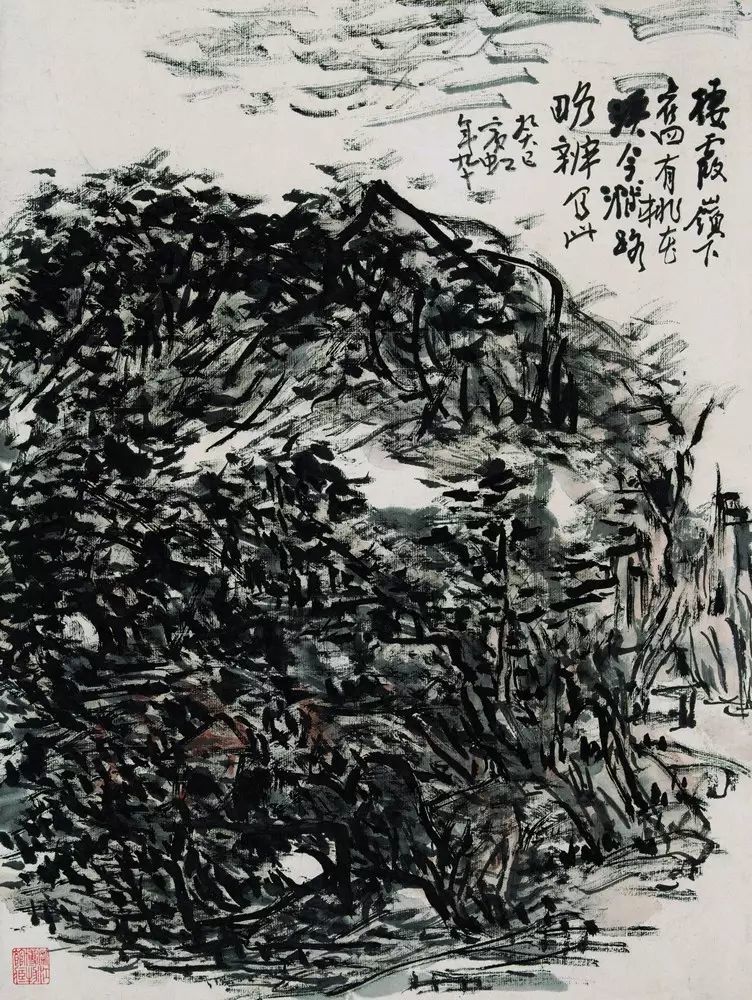 棲霞嶺下
有桃花
溪今澗路
略辨写此
癸巳
賓虹
年九十